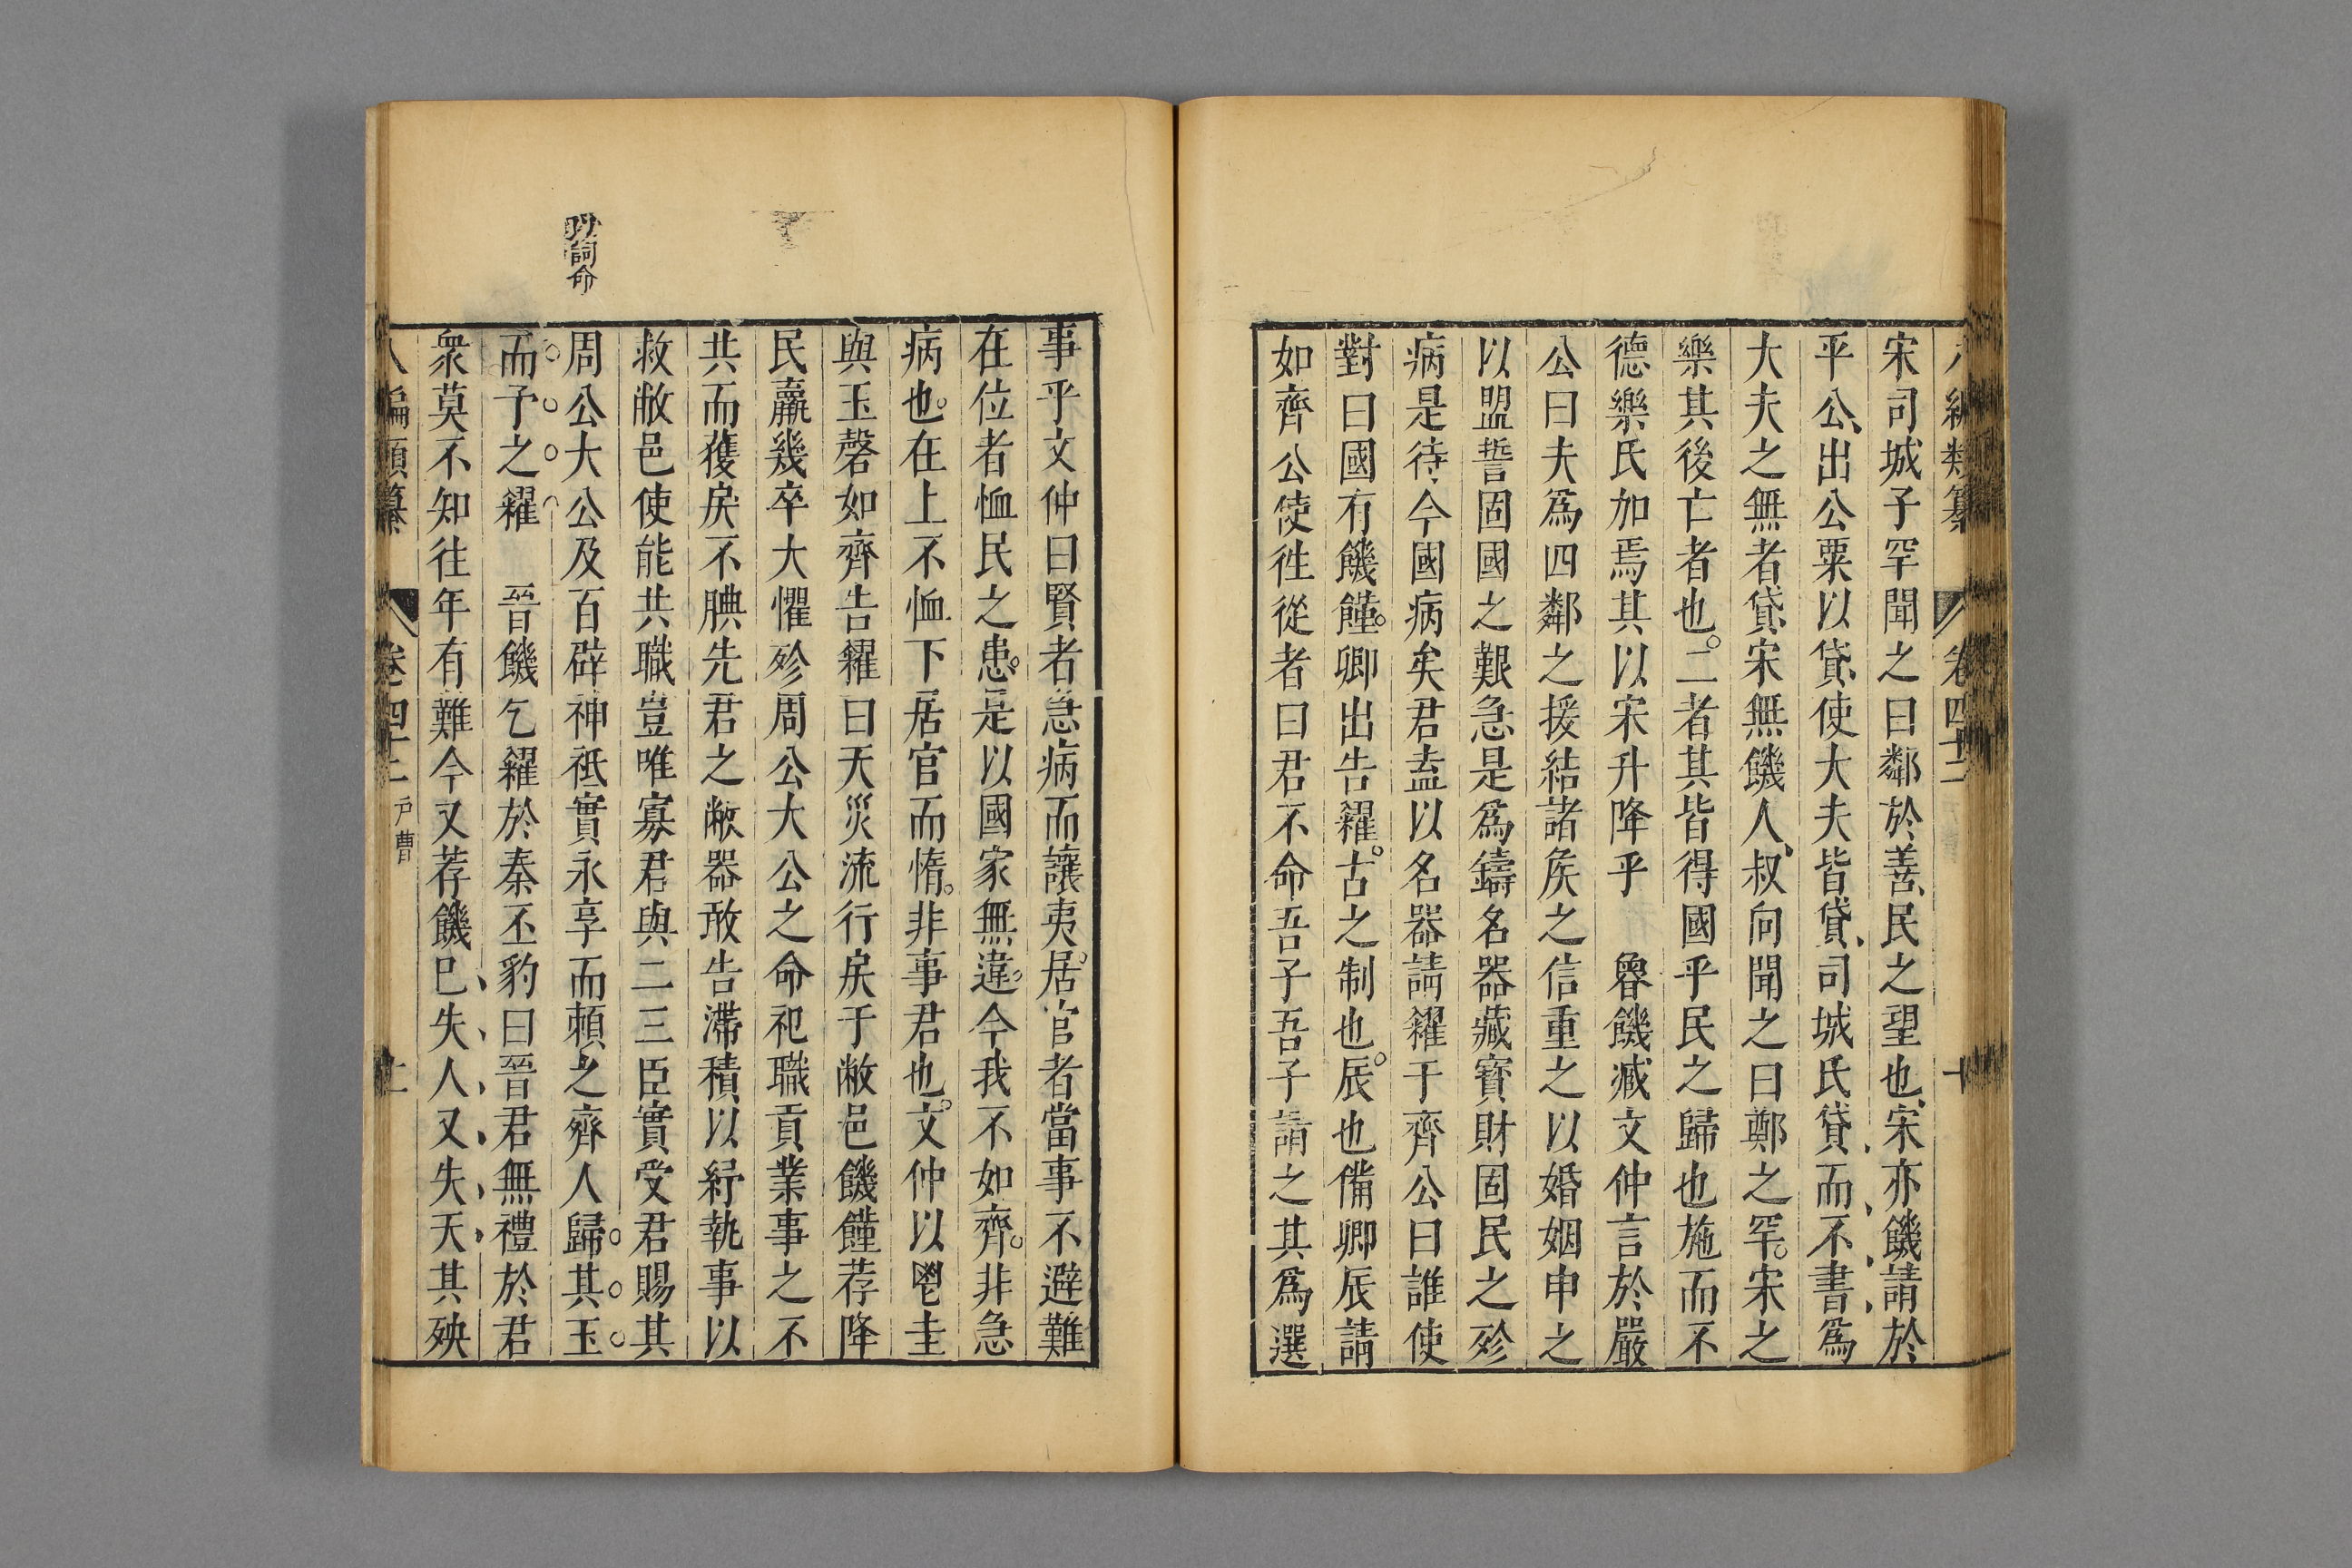 八編類纂 卷四十二 十
宋司城子罕聞之曰鄰於善民之望也宋亦饑請於
平公出公粟以貸使大夫皆貸司城氏貸而不書爲
大夫之無者貸宋無饑人叔向聞之曰鄭之罕宋之
樂其後亡者也二者其皆得國乎民之歸也施而不
德樂氏加焉其以宋升降乎 魯饑臧文仲言於嚴
公曰夫爲四鄰之援結諸矦之信重之以婚姻申之
以盟誓固國之艱急是爲鑄名器藏寶財固民之殄
病是待今國病矣君盍以名器請糴于齊公曰誰使
對曰國有饑饉卿出告糴古之制也辰也備卿辰請
如齊公使徃從者曰君不命吾子吾子請之其爲選
事乎文仲曰賢者急病而讓夷居官者當事不避難
在位者恤民之患是以國家無違今我不如齊非急
病也在上不恤下居官而惰非事君也文仲以鬯圭
與玉磬如齊告糴曰天災流行戾于敝邑饑饉荐降
民羸幾卒大懼殄周公大公之命祀職貢業事之不
共而獲戾不腆先君之敝器敢告滯積以紓執事以
救敝邑使能共職豈唯寡君與二三臣實受君賜其
周公大公及百辟神祇實永享而賴之齊人歸其玉
而予之糴 晉饑乞糴於秦丕豹曰晉君無禮於君
衆莫不知往年有難今又荐饑已失人又失天其殃
詞命
八編類纂 卷四十二 戶曹 十一